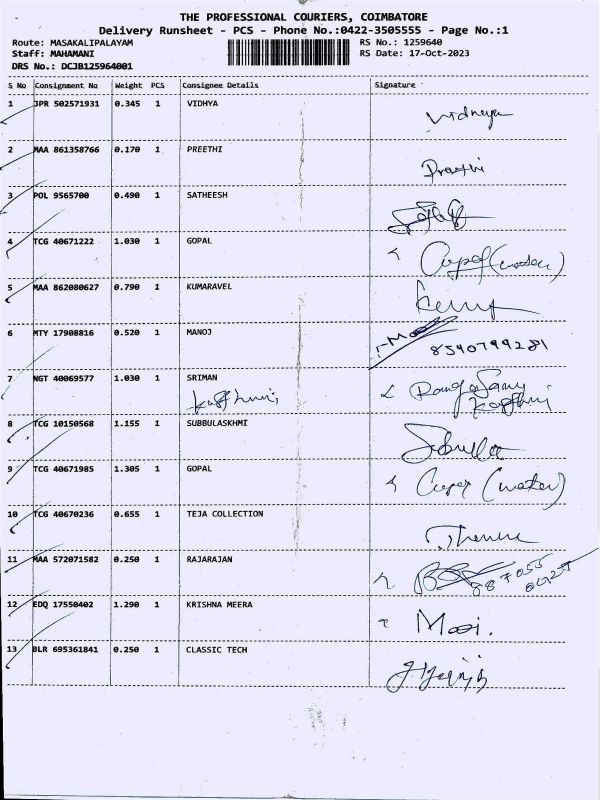 THE PROFESSIONAL COURIERS, COIMBATORE
Delivery Runsheet - PCS - Phone No.:0422-3505555 - Page No.:1
Route: MASAKALIPALAYAM RS No.: 1259640
Staff: MAHAMANI RS Date: 17-Oct-2023
DRS No.: DCJB125964001
S No Consignment No Weight PCS Consignee Details Signature
1 JPR 502571931 0.345 1 VIDHYA
2 MAA 861358766 0.170 1 PREETHI Preethi
3 POL 9565700 0.490 1 SATHEESH
4 TCG 40671222 1.030 1 GOPAL
5 MAA 862080627 0.790 1 KUMARAVEL
6 MTY 17908816 0.520 1 MANOJ 8540799281
7 NGT 40069577 1.030 1 SRIMAN
8 TCG 10150568 1.155 1 SUBBULASKHMI
9 TCG 40671985 1.305 1 GOPAL
10 TCG 40670236 0.655 1 TEJA COLLECTION
11 MAA 572071582 0.250 1 RAJARAJAN
12 EDQ 17550402 1.290 1 KRISHNA MEERA
13 BLR 695361841 0.250 1 CLASSIC TECH